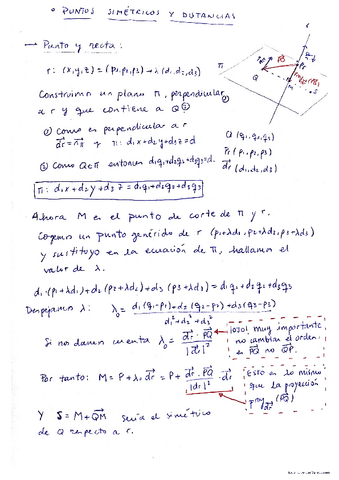 • PUNTOS SIMÉTRICOS Y DISTANCIAS
→ Punto y recta:
r: (x,y,z) = (p₁,p₂,p₃) + λ(d₁,d₂,d₃)
Construimos un plano π, perpendicular ①
a r y que contiene a Q ②
① Como es perpendicular a r
d⃗r = n⃗π ⇒ π: d₁x+d₂y+d₃z=d
② Como Q∈π entonces d₁q₁+d₂q₂+d₃q₃=d.
π: d₁x+d₂y+d₃z = d₁q₁+d₂q₂+d₃q₃
r
π
Q
Q (q₁,q₂,q₃)
Pr (p₁,p₂,p₃)
d⃗r (d₁,d₂,d₃)
Ahora M es el punto de corte de π y r.
Cogemos un punto genérico de r (p₁+λd₁, p₂+λd₂, p₃+λd₃)
y sustituyo en la ecuación de π, hallamos el
valor de λ.
d₁(p₁+λd₁)+d₂(p₂+λd₂)+d₃(p₃+λd₃) = d₁q₁+d₂q₂+d₃q₃
Despejamos λ: λ₀ = d₁(q₁-p₁)+d₂(q₂-p₂)+d₃(q₃-p₃) / d₁²+d₂²+d₃²
Si nos damos cuenta λ₀ = d⃗r · P⃗Q / |d⃗r|²
¡OJO! muy importante
no cambiar el orden
es P⃗Q no Q⃗P.
Por tanto: M = P + λ₀ d⃗r = P + d⃗r · P⃗Q / |d⃗r|² · d⃗r
Esto es lo mismo
que la proyección
Proy d⃗r (P⃗Q)
Y S = M + Q⃗M sería el simétrico
de Q respecto a r.